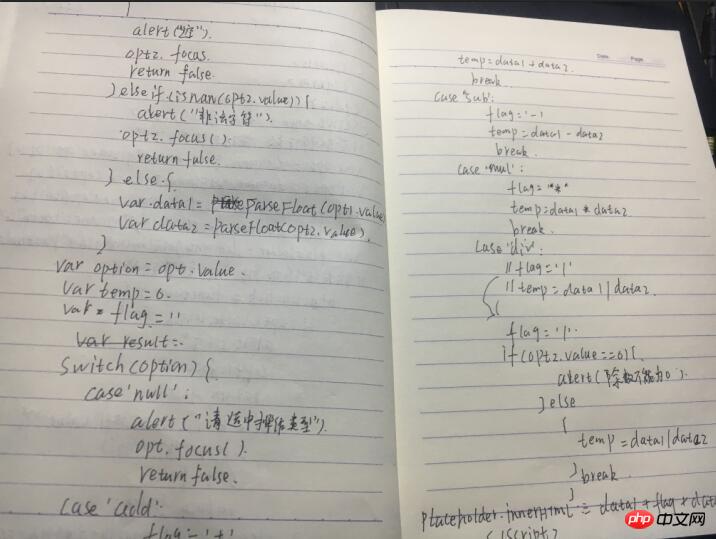 alert("空").
opt2.focus.
return false.
}else if(isnan(opt2.value)){
alert("非法字符").
opt2.focus().
return false.
} else {
var data1 = parseFloat(opt1.value
var data2 = parseFloat(opt2.value).
}
var option = opt.value.
var temp = 0.
var flag = ''
var result =.
switch(option){
case 'null':
alert("请选中操作类型").
opt.focus().
return false.
case 'add':
flag = '+'
Date Page
temp = data1 + data2.
break.
case 'sub':
flag = '-'
temp = data1 - data2
break.
case 'mul':
flag = "*"
temp = data1 * data2
break.
case 'div':
// flag = '/'
// temp = data1 / data2.
flag = '/'.
if(opt2.value==0){
alert(除数不能为0).
} else
{
temp = data1/data2
} break
}
placeholder.innerHtml = data1 + flag + data
</script>
php 中文网